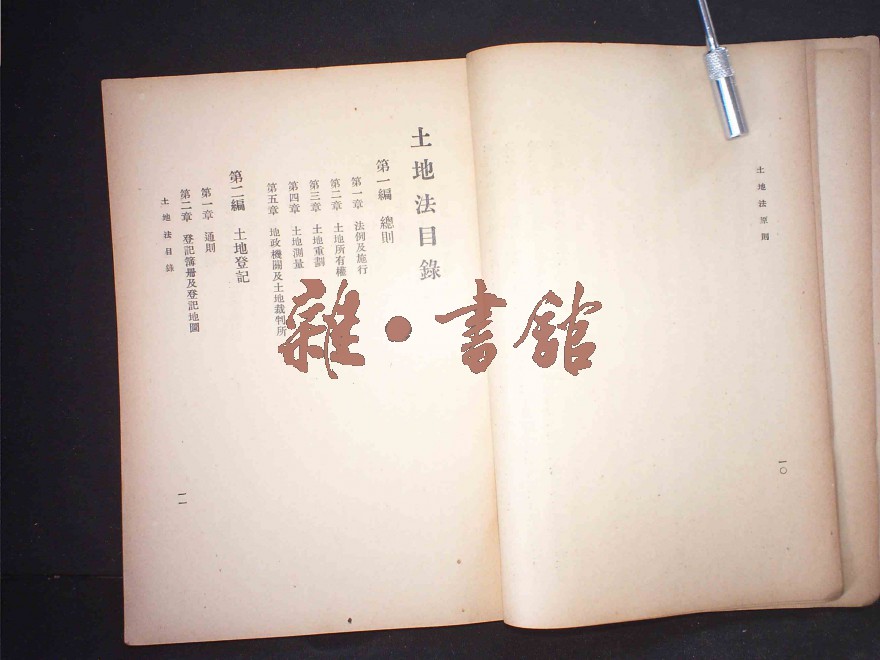 土地法原則
一〇
土地法目錄
第一編 總則
第一章 法例及施行
第二章 土地所有權
第三章 土地重劃
第四章 土地測量
第五章 地政機關及土地裁判所
第二編 土地登記
第一章 通則
第二章 登記簿册及登記地圖
土地法目錄
一一
雜·書館